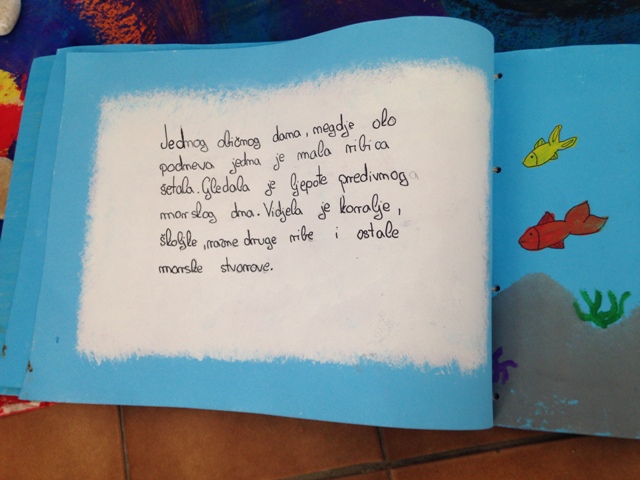 Jednog običnog dana, negdje oko
podneva jedna je mala ribica
šetala. Gledala je ljepote predivnog
morskog dna. Vidjela je koralje,
školjke, razne druge ribe i ostale
morske stvorove.